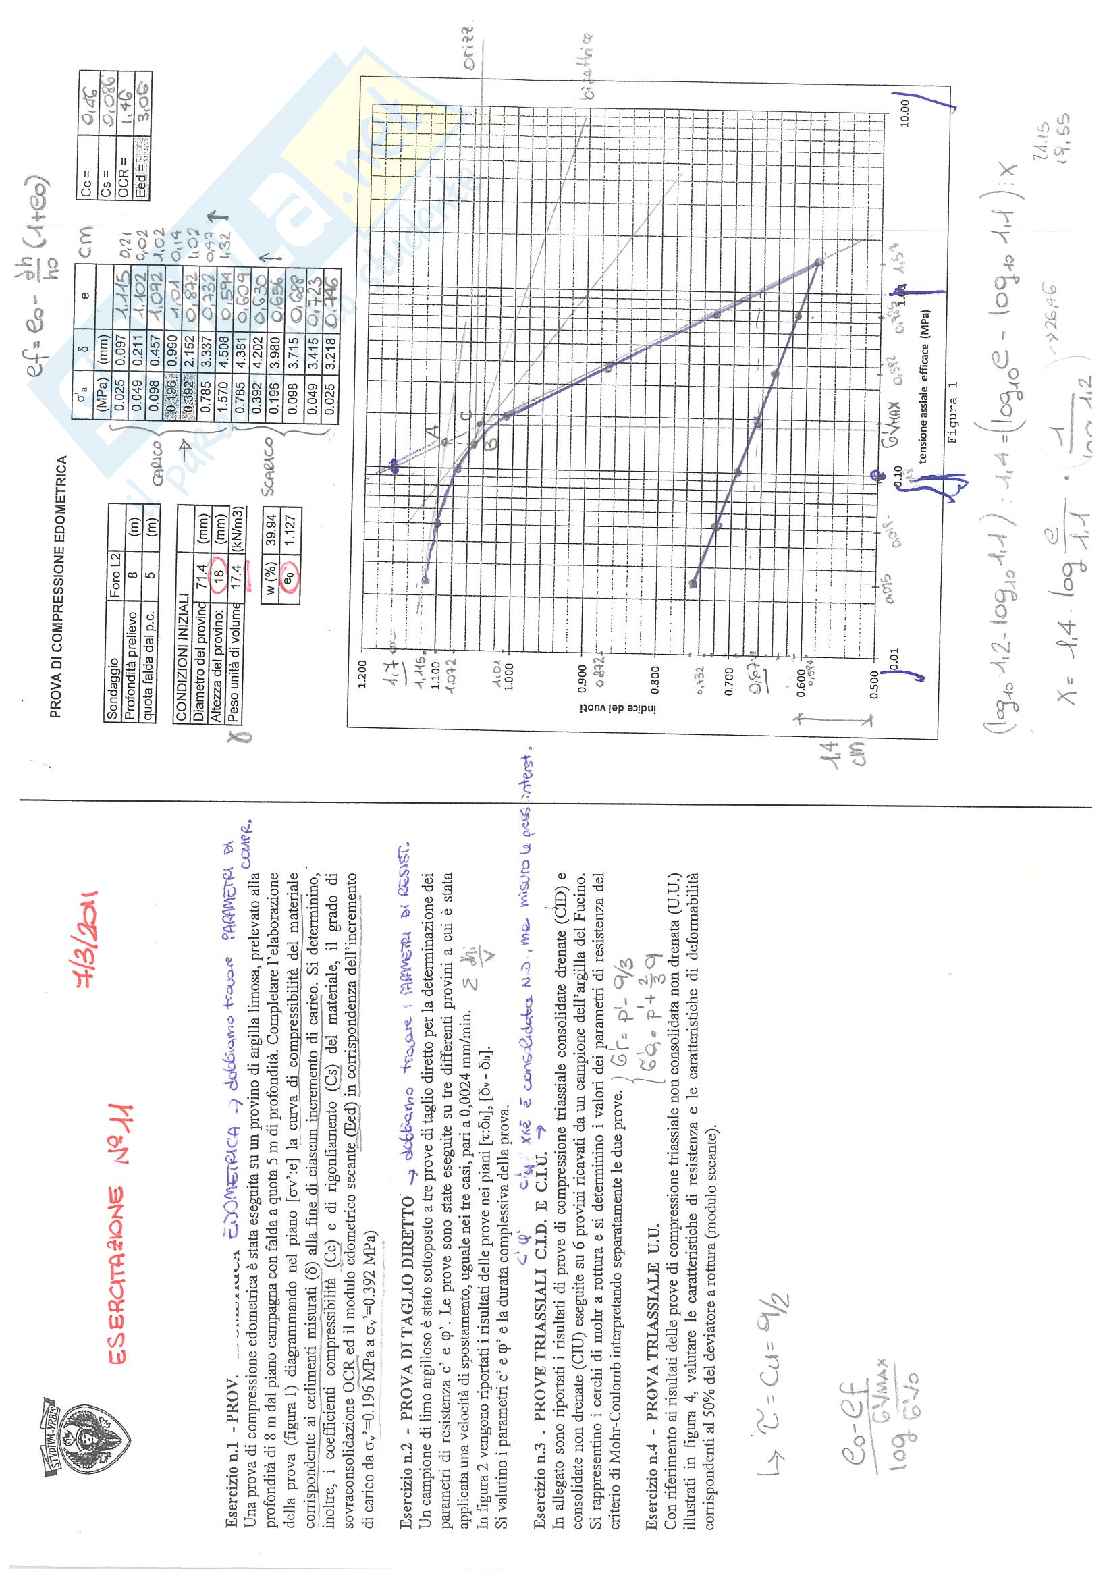 7/3/2011
ESERCITAZIONE N°11
Esercizio n.1 - PROV. EDOMETRICA → dobbiamo trovare PARAMETRI DI COMPR.
Una prova di compressione edometrica è stata eseguita su un provino di argilla limosa, prelevato alla
profondità di 8 m dal piano campagna con falda a quota 5 m di profondità. Completare l'elaborazione
della prova (figura 1) diagrammando nel piano [σv':e] la curva di compressibilità del materiale
corrispondente ai cedimenti misurati (δ) alla fine di ciascun incremento di carico. Si determinino,
inoltre, i coefficienti compressibilità (Cc) e di rigonfiamento (Cs) del materiale, il grado di
sovraconsolidazione OCR ed il modulo edometrico secante (Eed) in corrispondenza dell'incremento
di carico da σv'=0.196 MPa a σv'=0.392 MPa)
Esercizio n.2 - PROVA DI TAGLIO DIRETTO → dobbiamo trovare i PARAMETRI DI RESIST.
Un campione di limo argilloso è stato sottoposto a tre prove di taglio diretto per la determinazione dei
parametri di resistenza c' e φ'. Le prove sono state eseguite su tre differenti provini a cui è stata
applicata una velocità di spostamento, uguale nei tre casi, pari a 0,0024 mm/min.
In figura 2 vengono riportati i risultati delle prove nei piani [τ:δh], [δv - δh].
Si valutino i parametri c' e φ' e la durata complessiva della prova.
c' φ' c' φ' XKÈ È consolidata N.D., ma misuro le press interst.
Esercizio n.3 - PROVE TRIASSIALI C.I.D. E C.I.U. →
In allegato sono riportati i risultati di prove di compressione triassiale consolidate drenate (CID) e
consolidate non drenate (CIU) eseguite su 6 provini ricavati da un campione dell'argilla del Fucino.
Si rappresentino i cerchi di mohr a rottura e si determinino i valori dei parametri di resistenza del
criterio di Mohr-Coulomb interpretando separatamente le due prove.
σ'r = p' - q/3
σ'a = p' + 2/3 q
Esercizio n.4 - PROVA TRIASSIALE U.U.
Con riferimento ai risultati delle prove di compressione triassiale non consolidata non drenata (U.U.)
illustrati in figura 4, valutare le caratteristiche di resistenza e le caratteristiche di deformabilità
corrispondenti al 50% del deviatore a rottura (modulo secante).
↳ τ = Cu = q/2
e0-ef / log σ'VMAX/σ'V0
ef = e0 - ∂h/h0 (1+e0)
PROVA DI COMPRESSIONE EDOMETRICA
Sondaggio Foro L2
Profondità prelievo 8 (m)
quota falda dal p.c. 5 (m)
CONDIZIONI INIZIALI
Diametro del provino 71.4 (mm)
Altezza del provino: 18 (mm)
γ Peso unità di volume 17.4 (kN/m3)
w (%) 39.94
e0 1.127
CARICO
SCARICO
σ'a δ e cm
(MPa) (mm)
0.025 0.097 1.115 0,21
0.049 0.211 1.102 0,02
0.098 0.457 1.072 1,02
0.196 0.990 1.01 0,14
0.392 2.152 0.872 1,02
0.785 3.337 0.732 0,97
1.570 4.508 0.594 1,32
0.785 4.381 0.609
0.392 4.202 0.630
0.196 3.980 0.656
0.098 3.715 0.688
0.049 3.415 0.723
0.025 3.218 0.746
Cc = 0,46
Cs = 0,086
OCR = 1,46
Eed = 3,06
orizz.
bisettrice
A
B
C
1.200
1,115
1.100
1.072
1.01
1.000
0.900
0.872
0.800
0,732
0.700
0.600
0,594
0.500
indice dei vuoti
1,4 cm
0.01
0,025
0.10
σ'VMAX
0,392
1.57
10.00
tensione assiale efficace (MPa)
Figura 1
(log10 1,2 - log10 1,1) : 1,4 = (log10 e - log10 1,1) : X
X = 1,4 · log e/1,1 · 1/
→26,46
21.15
19,55